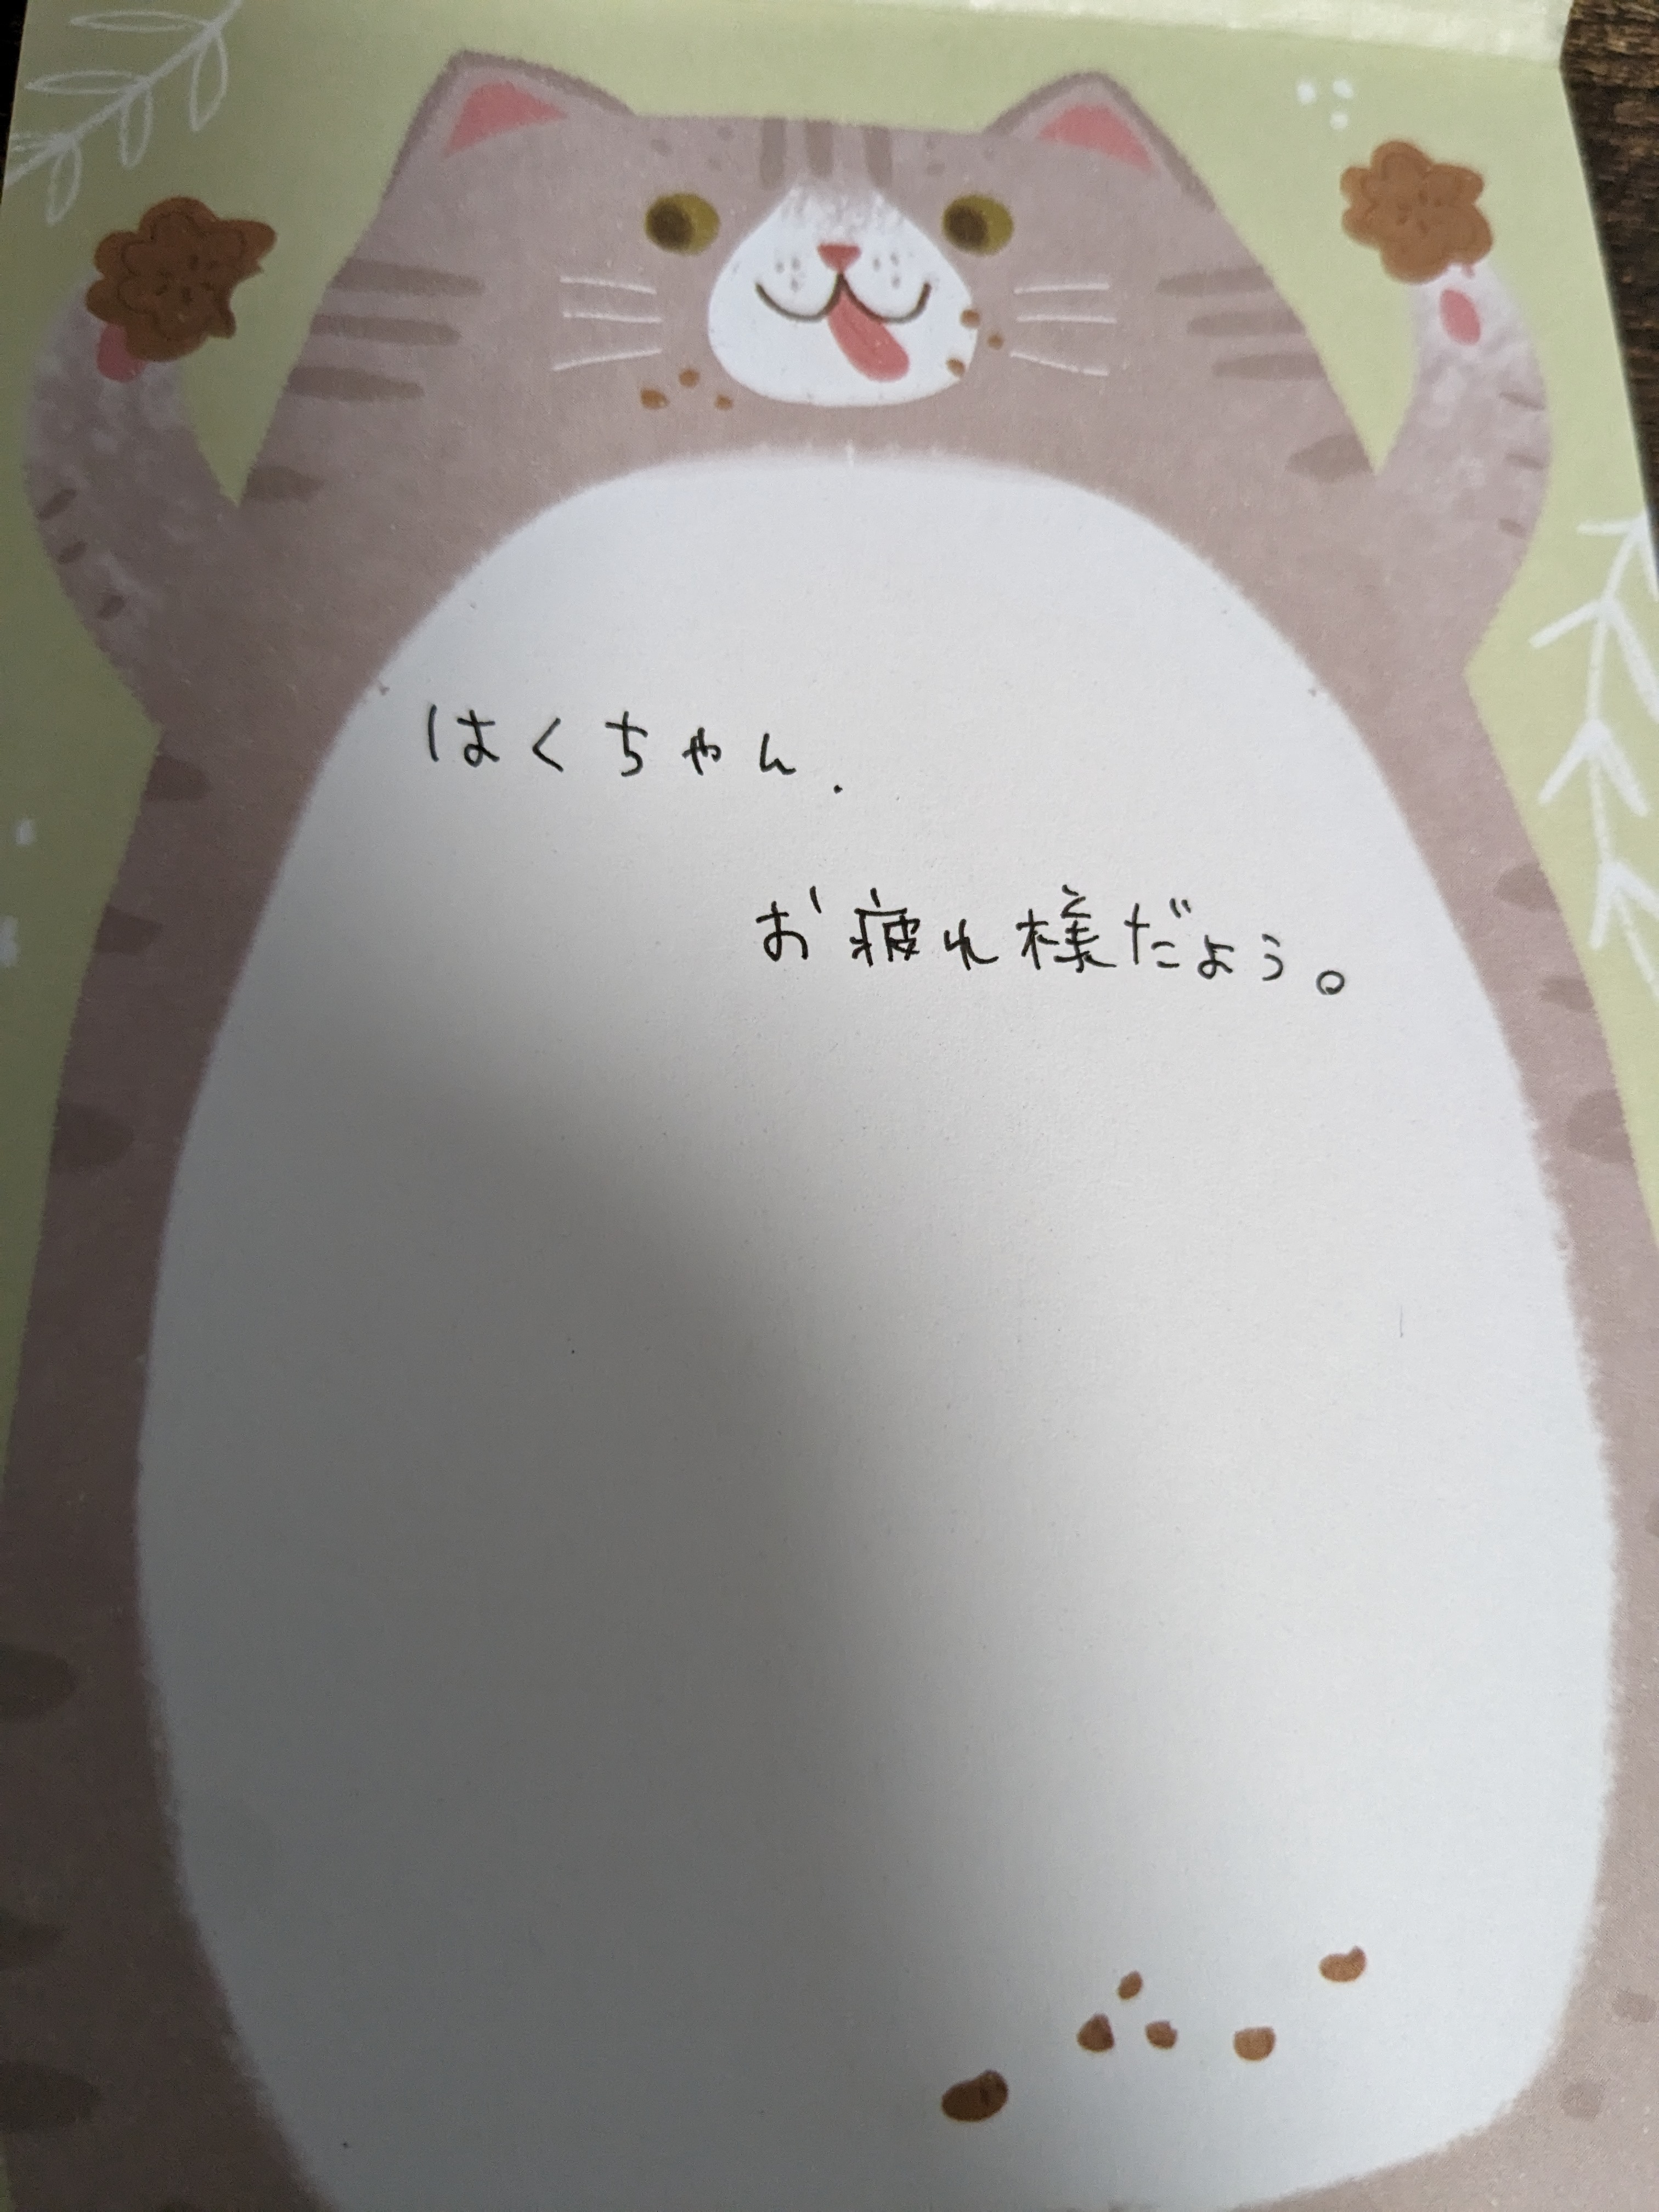 はくちゃん.
お疲れ様だよう。